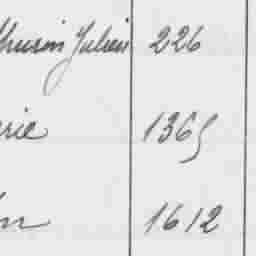 thurin Julien 226
rie 1365
in 1612